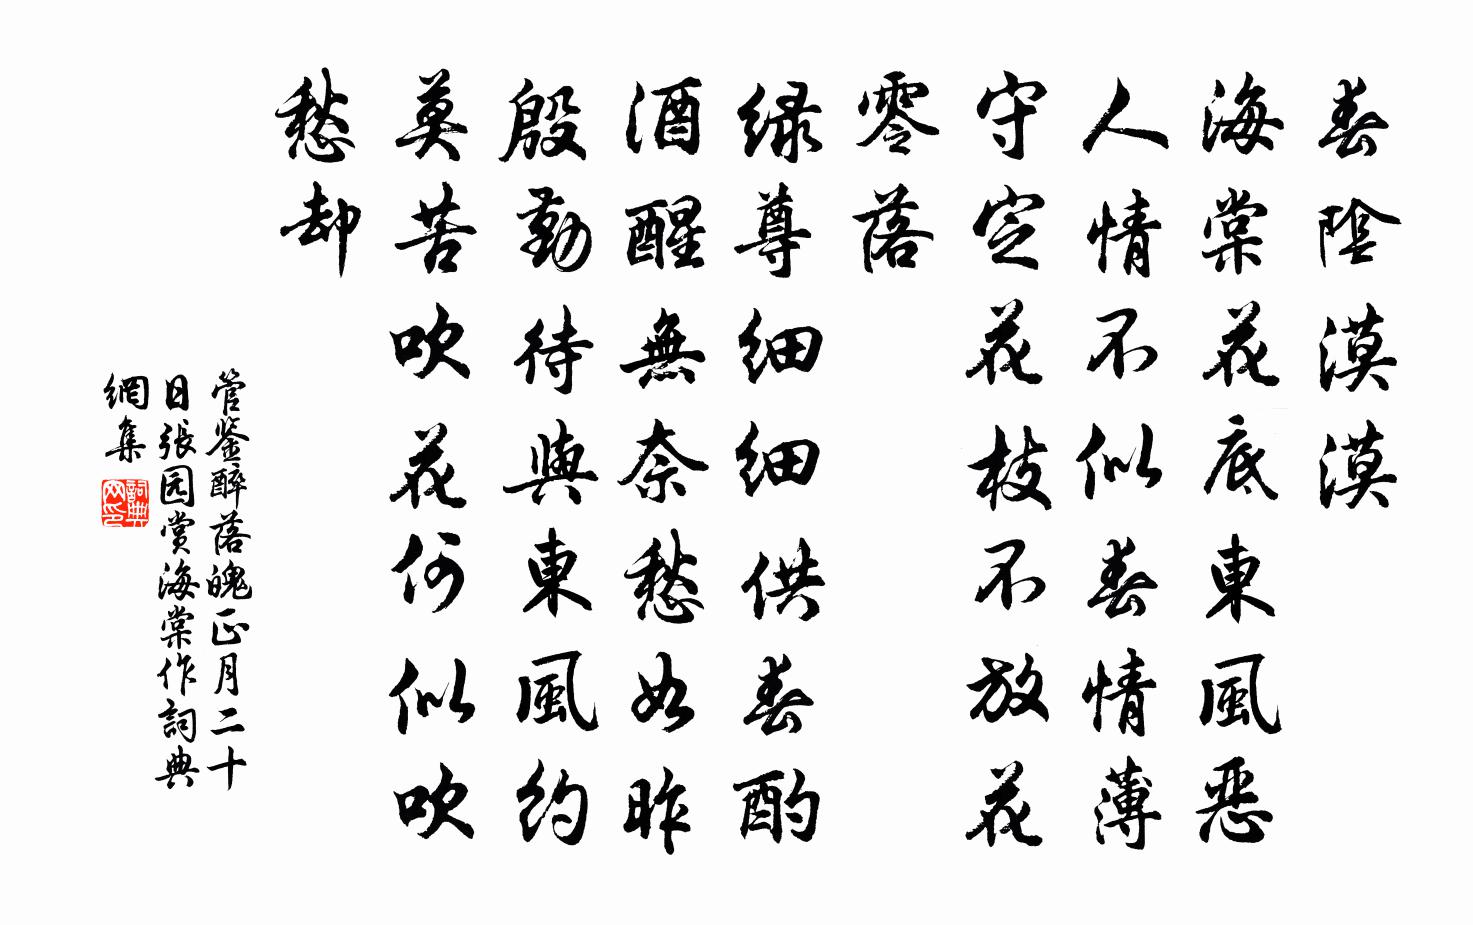 春陰漠漠
海棠花底東風惡
人情不似春情薄
守定花枝不放花
零落
绿尊細細供春酌
酒醒無奈愁如昨
殷勤待與東風約
莫苦吹花何似吹
愁却
管鉴醉落魄正月二十
日張园赏海棠作詞典
網集
詞典網印